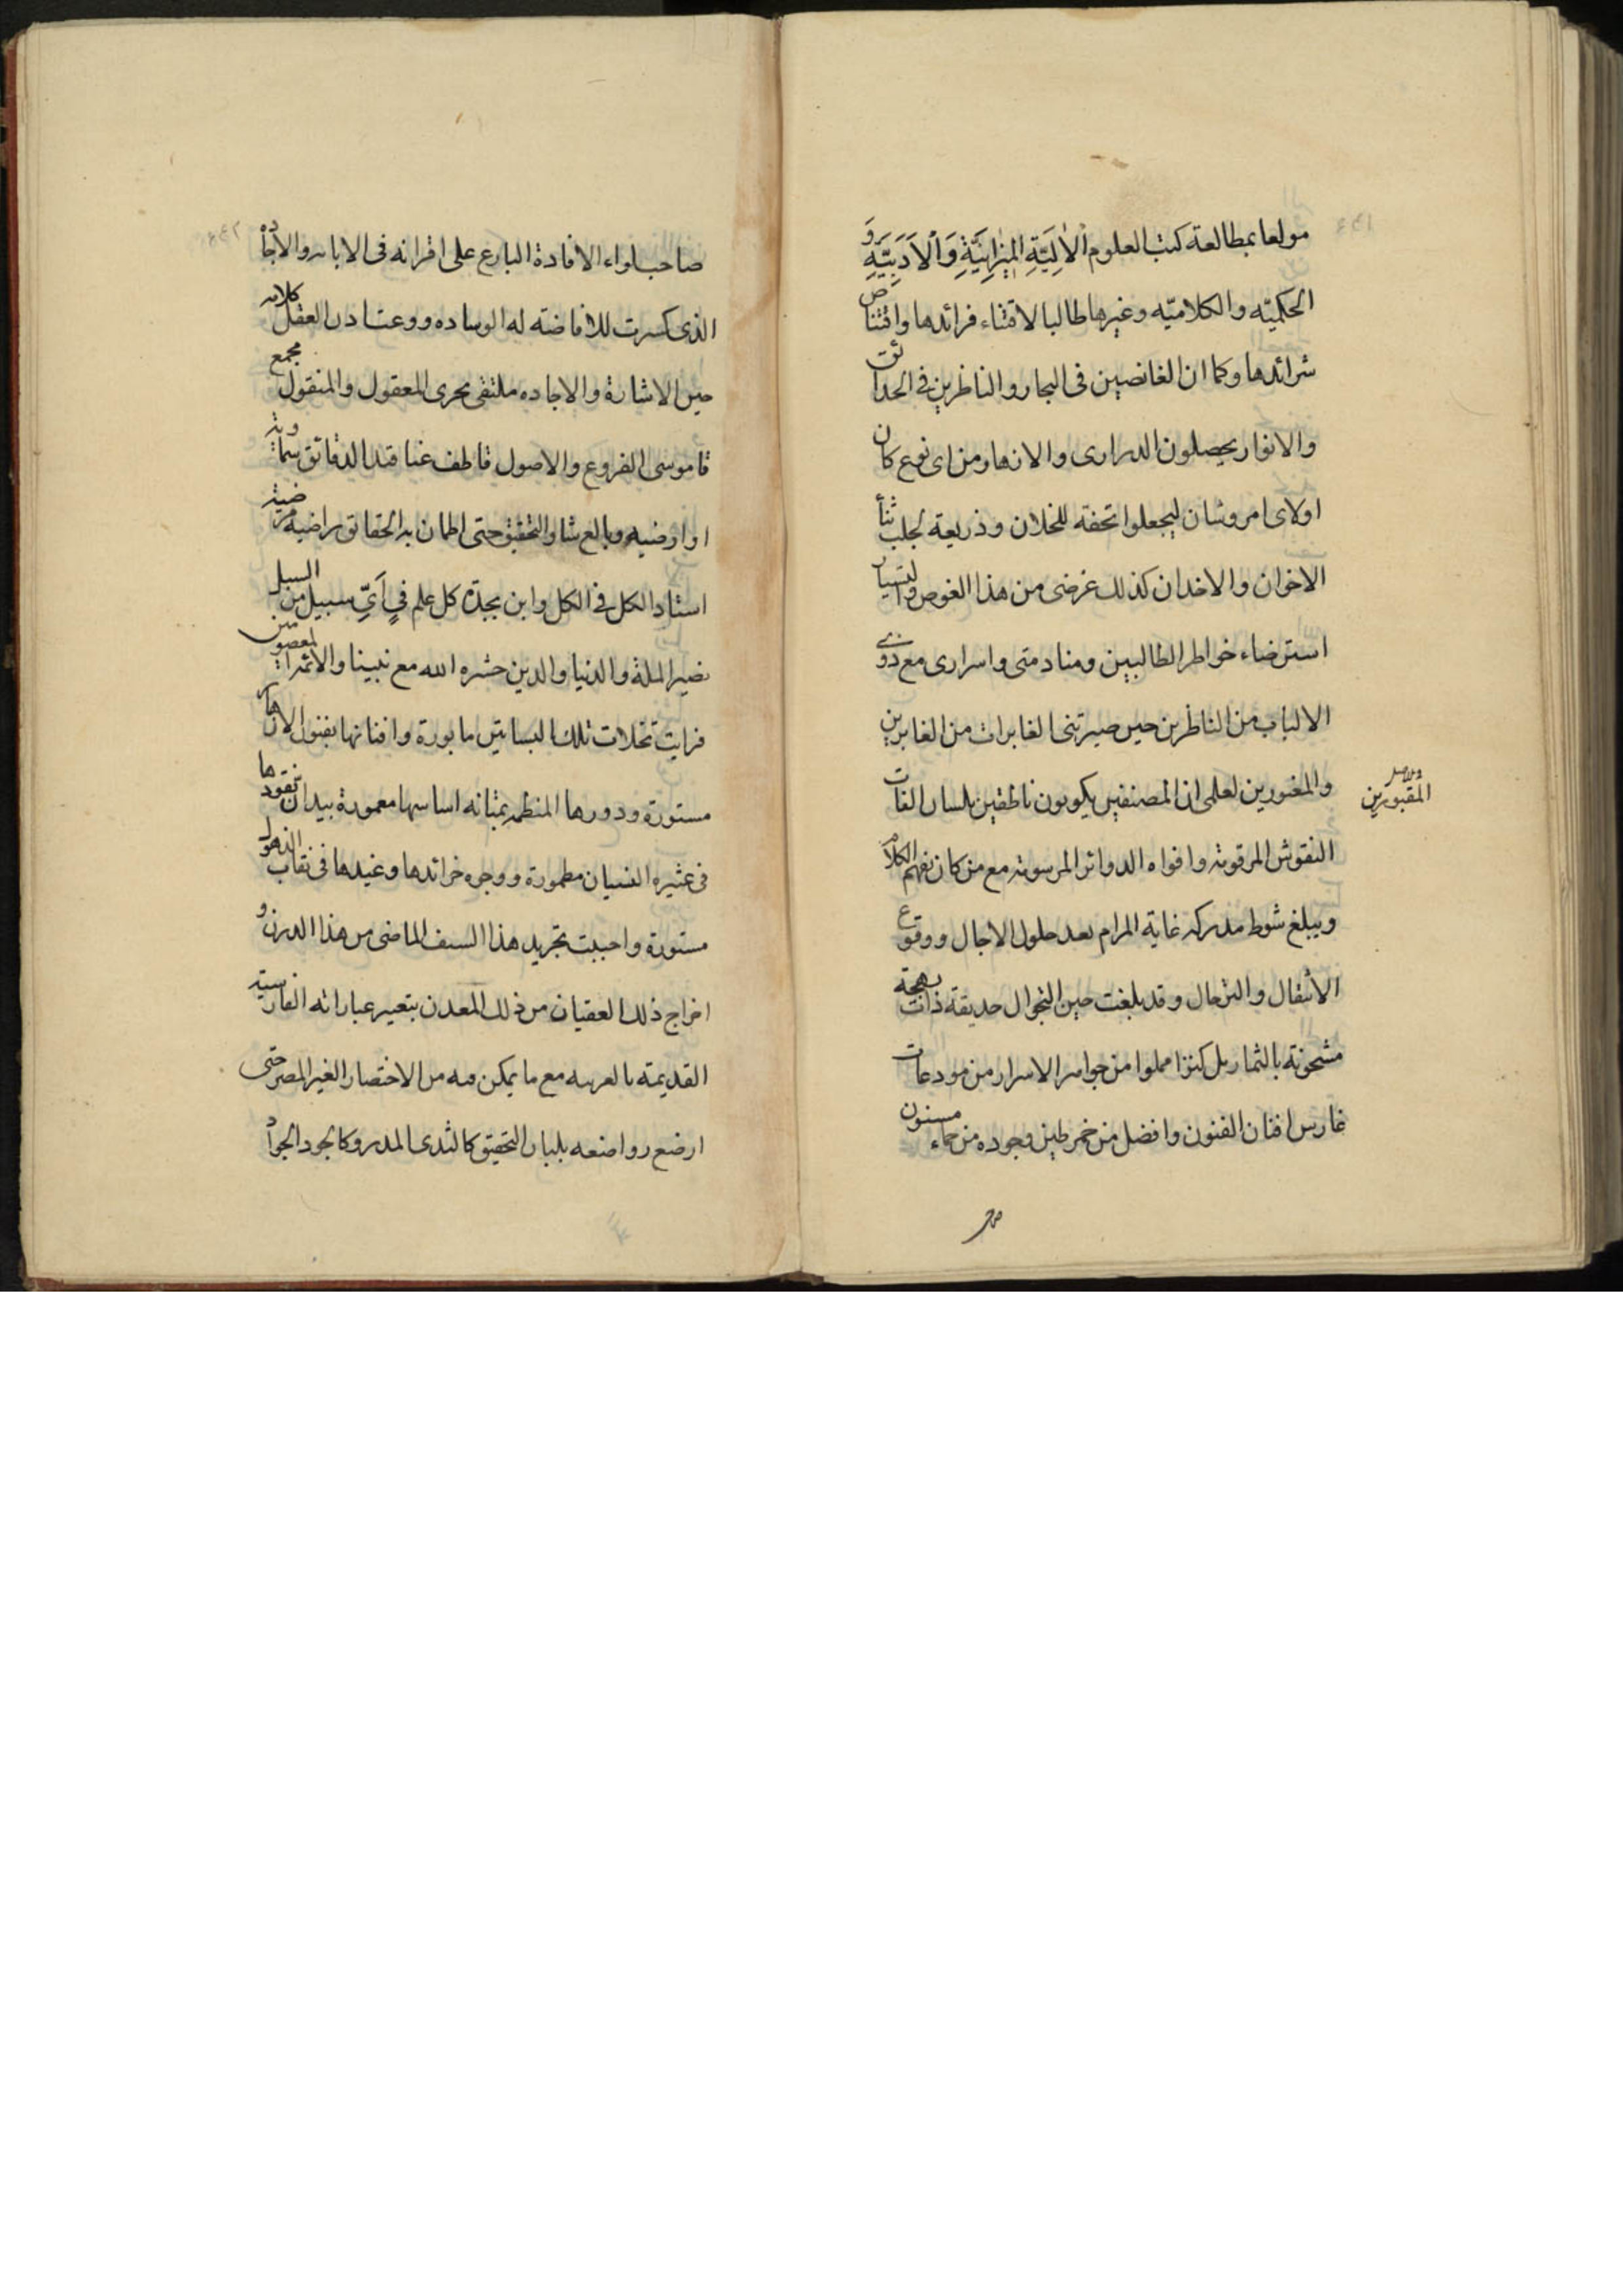 مولعا بمطالعة كتب العلوم الْاٰلِيَّةِ المِيْزانِيَّةِ وَالْاَدَبِيَّةِ وَ
الحكميّه والكلاميّه وغيرها طالبا لاقتناء فرائدها واقتناص
شرائدها وكما ان الغائصين فى البحار والناظرين فى الحدائق
والانوار يحصلون الدرارى والازهار ومن اى نوع كان
اولاى امر وشان ليجعلوا تحفه للخلان وذريعة لجلب ثنأ
الاخوان والاخدان كذلك غرضى من هذا الغوص والتسيار
استرضاء خواطر الطالبين ومنادمتى واسرارى مع ذوى
الالباب من الناظرين حين صيرتنى الغابرات من الغابرين
والمغبورين لعلمى ان المصنفين يكونون ناطقين بلسان الغات
المقبورين
النقوش المرقومة وافواه الدوائر المرسومة مع من كان يفهم الكلام
ويبلغ شوط مدركه غاية المرام بعد حلول الاجال ووقوع
الانتقال والترحال وقد بلغت حين التجوال حديقة ذات بهجة
مشحونة بالثمار بل كنزا مملوا من جواهر الاسرار من مودعات
غارس افنان الفنون وافضل من خمر طين وجوده من حماء مسنون
صاحب لواء الافادة البارع على اقرانه فى الابانه والاجاد
الذى كسرت للافاضته له الوساده ووعت اذن العقل كلامه
حين الاشارة والاجاده ملتقى بحرى المعقول والمنقول مجمع
قاموسى الفروع والاصول قاطف عناقيد الدقائق سماوية
او ارضيه وبالع حتى اطمان به الحقائق راضية مرضية
استاد الكل فى الكل وابن بجدة كل علم فى اَىِّ سبيل من السبل
نصير الملة والدنيا والدين حشره الله مع نبينا والائمة المعصومين
فرايت نخلات تلك البساتين مابورة وافنانها بفنون الازهار
مستورة ودورها المنظمه بمتانه اساسها معمورة بيدان نقودها
فى عثيره النسيان مطمورة ووجوه خرائدها وغيدها فى نقاب الذهول
مستورة واحببت تجريد هذا السيف الماضى من هذا الدرن و
اخراج ذلك العقيان من ذلك المعدن بتعبير عباراته الفارسية
القديمة بالعربيه مع ما يمكن فيه من الاختصار الغير المضر حتى
ارضع رواضعه بلبان التحقيق كالثدى المدر وكالجود الجواد